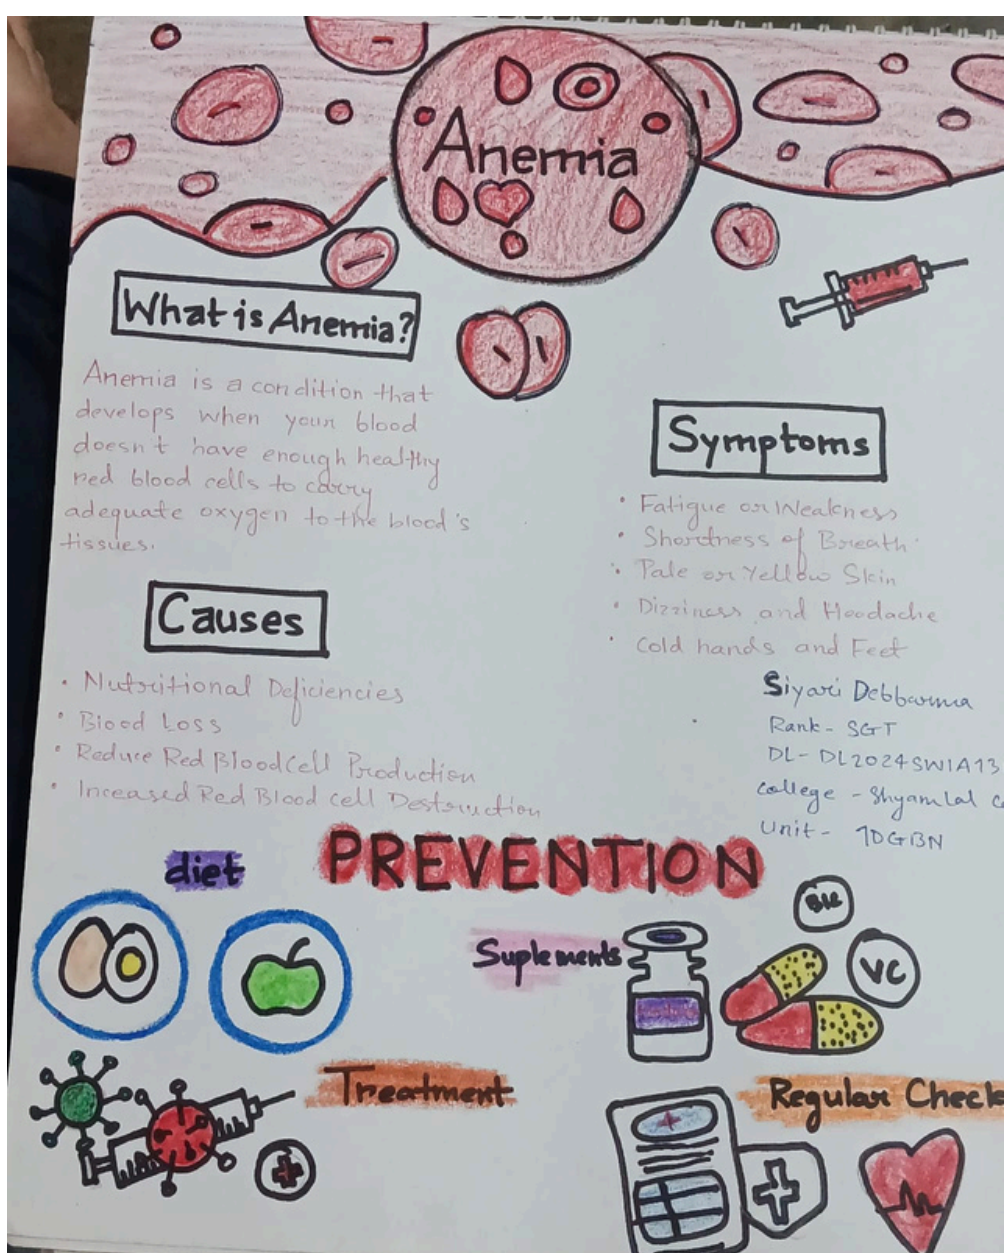 Anemia
What is Anemia?
Anemia is a condition that
develops when your blood
doesn't have enough healthy
red blood cells to carry
adequate oxygen to the blood's
tissues.
Symptoms
• Fatigue or Weakness
• Shortness of Breath
• Pale or Yellow Skin
• Dizziness and Headache
• Cold hands and Feet
Causes
• Nutritional Deficiencies
• Blood Loss
• Reduce Red Blood Cell Production
• Inceased Red Blood cell Destruction
Siyari Debbarma
Rank - SGT
DL - DL2024SWIA13
college - Shyamlal
Unit - 7DGBN
PREVENTION
diet
Suplements
VC
Treatment
Regular Check